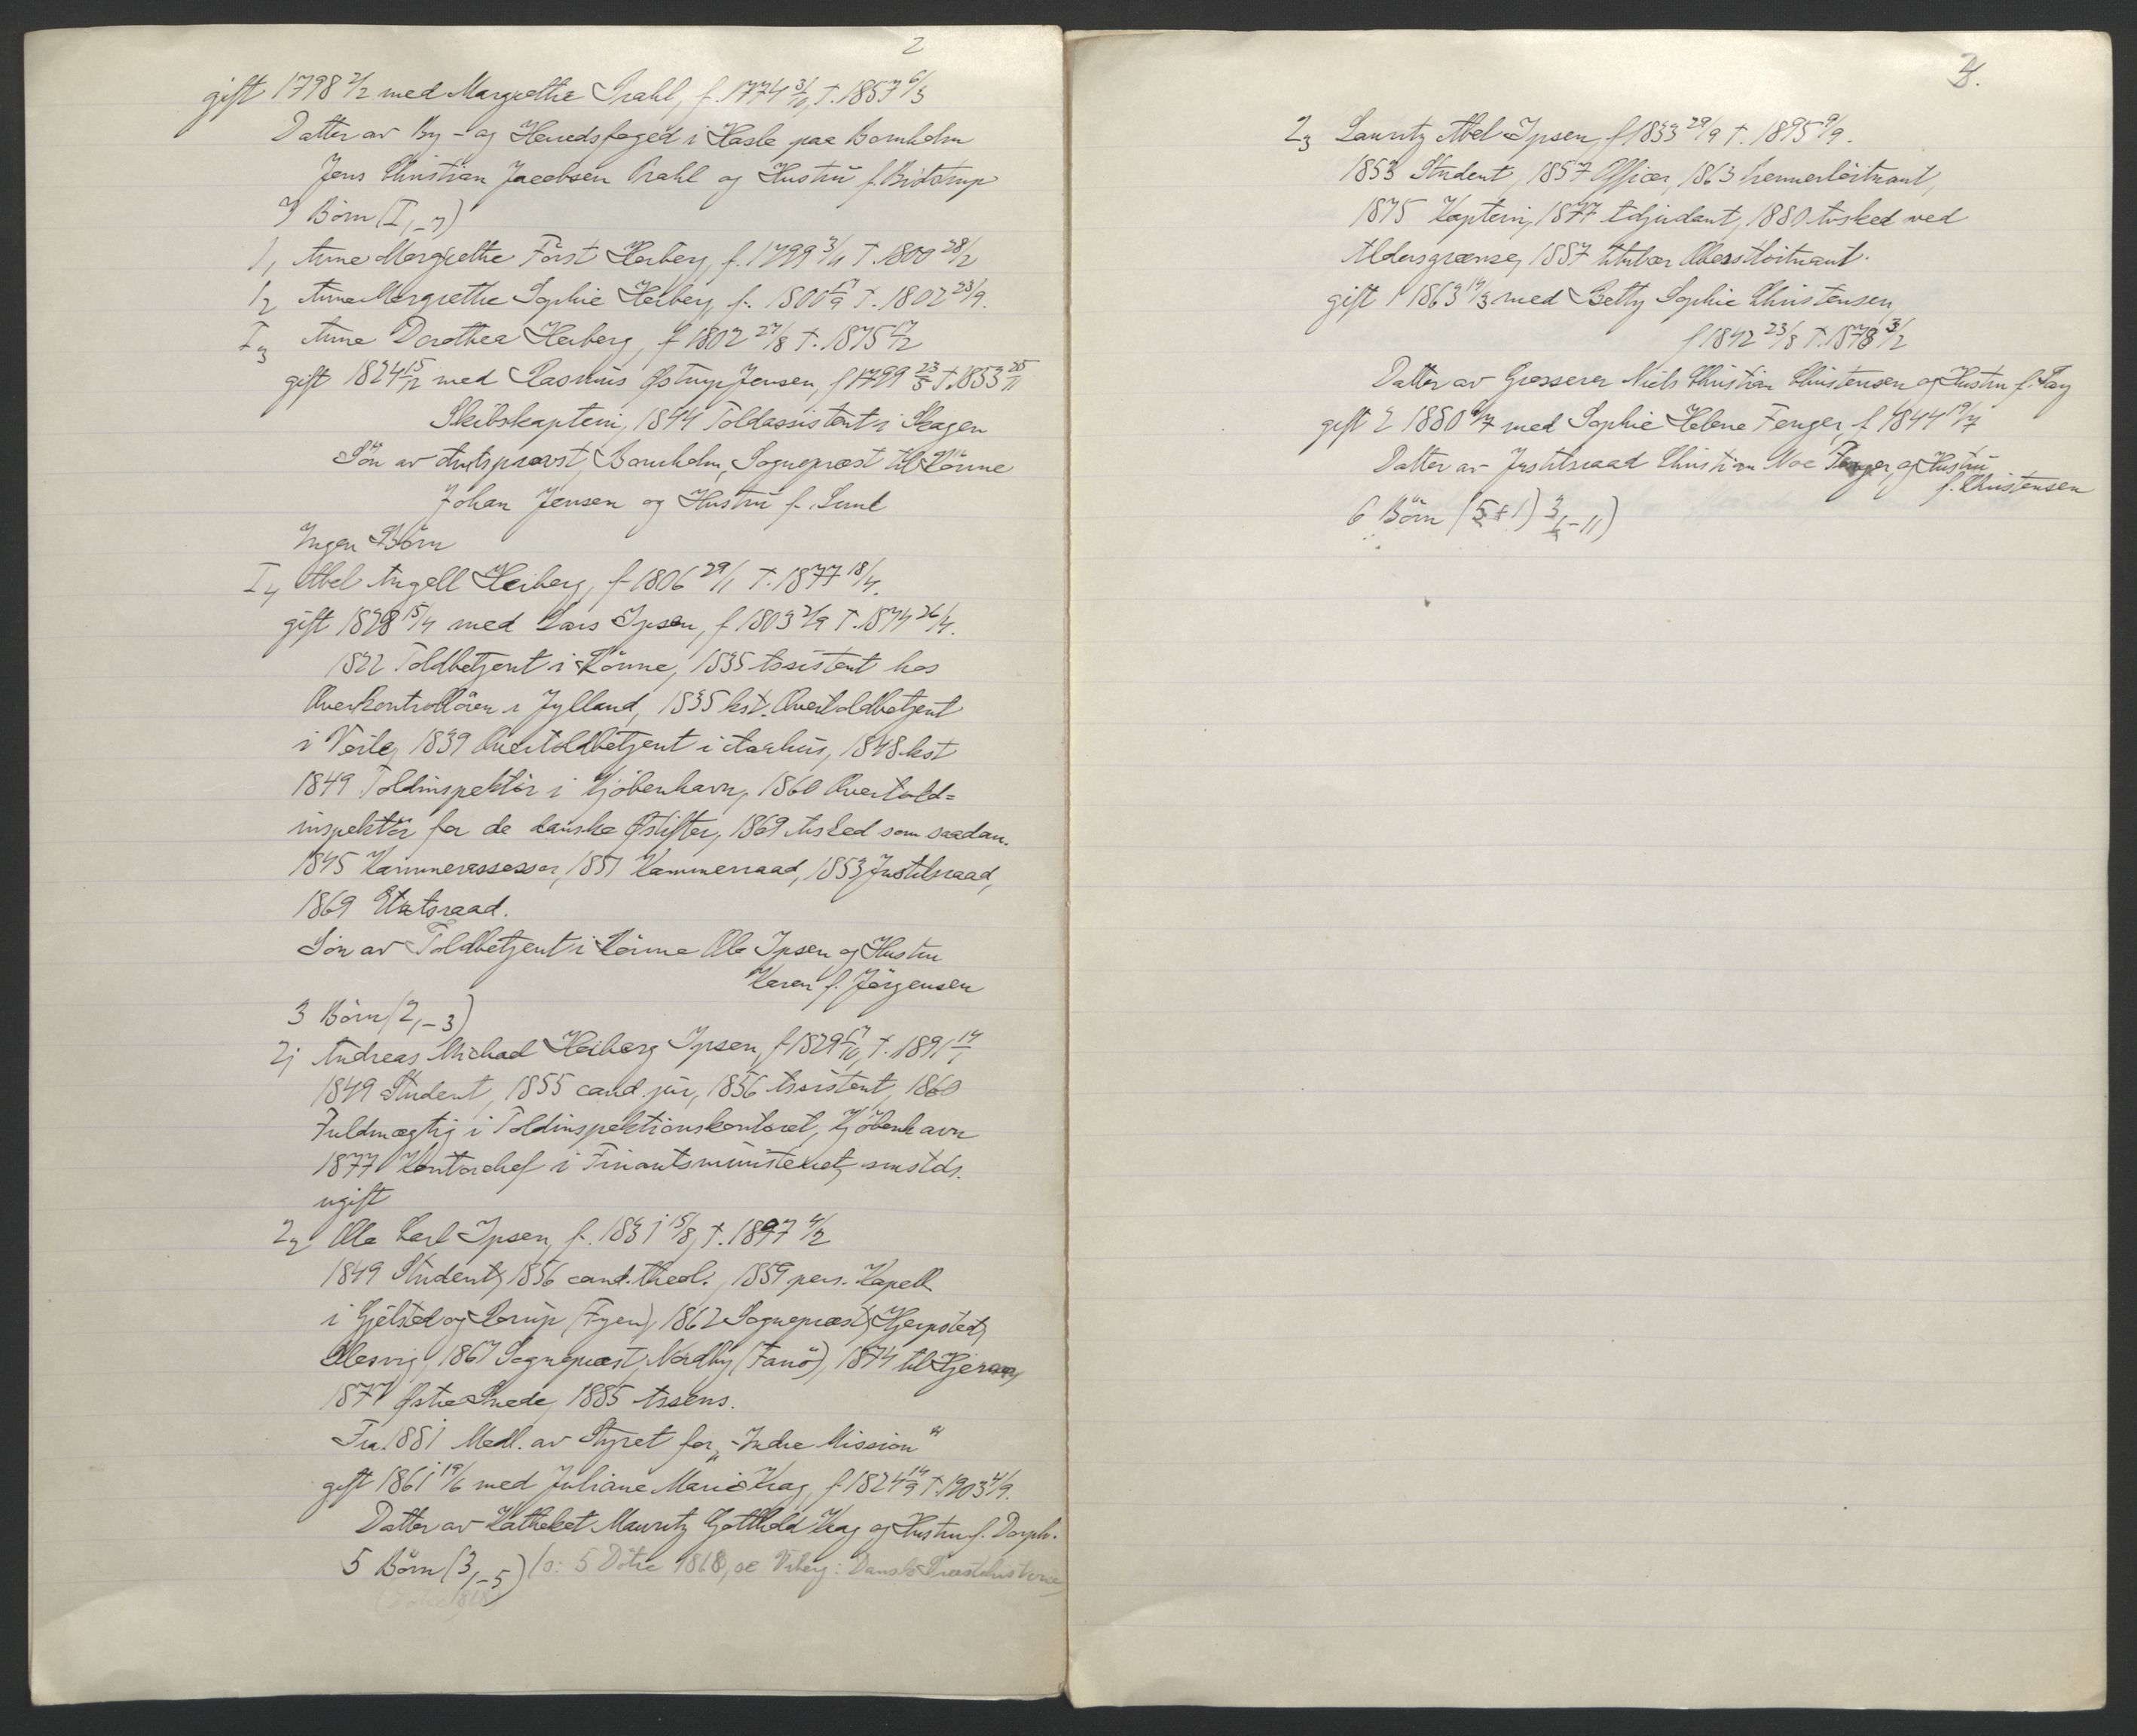 2
gift 1798 2/2 med Margrethe Prahl, f. 1774 3/10, †. 1857 6/3
Datter av By- og Herredsfoged i Hasle paa Bornholm
Jens Christian Jacobsen Prahl og Hustru f.
7 Börn (I, - 7)
1, Anne Margrethe Först Heiberg, f. 1799 3/11 †. 1800 28/2
1 2 Anne Margrethe Sophie Heiberg, f. 1800 17/9 †. 1802 23/9.
I 3 Anne Dorothea Heiberg, f 1802 27/8 †. 1875 17/2
gift 1824 15/12 med Rasmus Østrup Jensen, f 1799 23/5 †. 1853 25/11
Skibskaptein, 1844 Toldassistent i Skagen
Sön av Amtsprovst, Bornholm, Sogneprest til Rönne
Johan Jensen og Hustru f.
Ingen Börn
I 4 Abel Angell Heiberg, f 1806 29/11 †. 1877 18/4.
gift 1828 15/4 med Lars Ipsen, f 1803 2/9 †. 1874 26/4.
1822 Toldbetjent i Rönne, 1835 Assistent hos
Overkontrollören i Jylland, 1835 kst. Overtoldbetjent
i Veile, 1839 Overtoldbetjent i Aarhus, 1848 kst
1849 Toldinspektör i Kjöbenhavn, 1860 Overtold=
inspektör for de danske Østifter, 1869 Avsked som saadan.
1845 Kammerassessor, 1851 Kammerraad, 1853 Justitsraad,
1869 Etatsraad.
Sön av Toldbetjent i Rönne Ole Ipsen og Hustru
Karen f. Jörgensen
3 Börn (2, - 3)
2, Andreas Michael Heiberg Ipsen, f 1829 17/10, †. 1891 14/1
1849 Student, 1855 cand. jur, 1856 Assistent, 1860
Fuldmægtig i Toldinspektionskontoret, Kjöbenhavn
1877 Kontorchef i Finantsministeriet, smstds.
ugift
2 2 Ole Carl Ipsen, f. 1831 15/8, †. 1897 4/2
1849 Student, 1856 cand. theol., 1859 pers. Kapell
i Gjelsted og Rörup (Fyen), 1862 Sogneprest, Hjerpsted,
Slesvig, 1867 Sogneprest, Nordby (Fanö), 1874 til
1877 Østre Snede, 1885 Assens.
Fra 1881 Medl. av Styret for „Indre Mission"
gift 1861 19/6 med Juliane Marie Krag, f 1824 14/9 †. 1903 4/9.
Datter av Katheket Mauritz Gotthold Krag og Hustru f. Dorph.
5 Börn (3, - 5) (o: 5 Döttre 1868, se Wiberg: Dansk Prestehistorie)
3.
2 3 Lauritz Abel Ipsen, f 1833 29/9 †. 1895 9/9.
1853 Student, 1857 Officer, 1863 Premierlöitnant,
1875 Kaptein, 1877 Adjudant, 1880 Avsked ved
Aldersgrænse, 1887 titulær Oberstlöitnant.
gift 1 1863 19/3 med Betty Sophie Christensen,
f 1842 23/8 †. 1878 3/2
Datter av Grosserer Niels Christian Christensen og Hustru f.
gift 2 1880 9/7 med Sophie Helene Fenger, f 1844 19/7
Datter av Justitsraad Christian Noe Fenger, og Hustru
f. Christensen
6 Börn (5 + 1) 3 6 - 11)